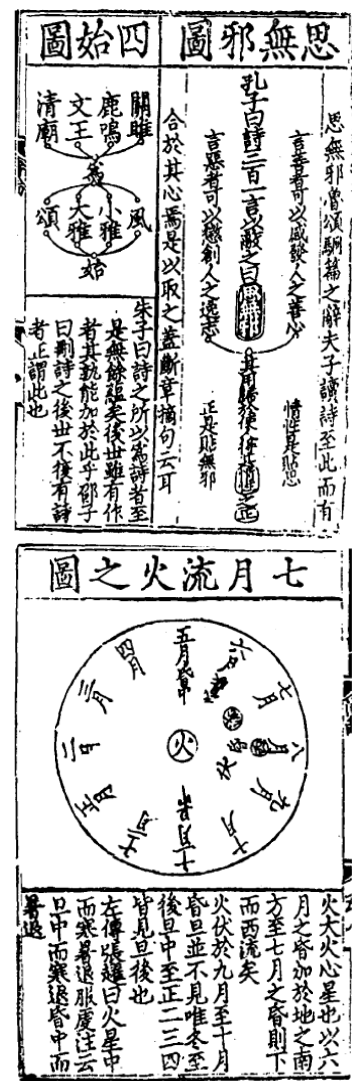 思無邪圖
思無邪魯頌駉篇之辭夫子讀詩至此而有
言善者可以感發人之善心
情性是貼思
孔子曰詩三百一言以蔽之曰思無邪
其用歸於使人得情性之正
言惡者可以懲創人之逸志
正是貼無邪
合於其心焉是以取之蓋斷章摘句云耳
四始圖
關雎
鹿鳴
文王
清廟
為
風
小雅
大雅
頌
始
朱子曰詩之所以為詩者至
是無餘蘊矣後世雖有作
者其孰能加於此乎邵子
曰刪詩之後世不復有詩
者正謂此也
七月流火之圖
五月昏
六月
七月
八月
九月
十月
十一月
十二月
正月
二月
三月
四月
火
火大火心星也以六
月之昏加於地之南
方至七月之昏則下
而西流矣
火伏於九月至十月
昏旦並不見唯冬至
後旦中至正二三四
皆見旦後也
左傳張趯曰火星中
而寒暑退服虔注云
旦中而寒退昏中而
暑退